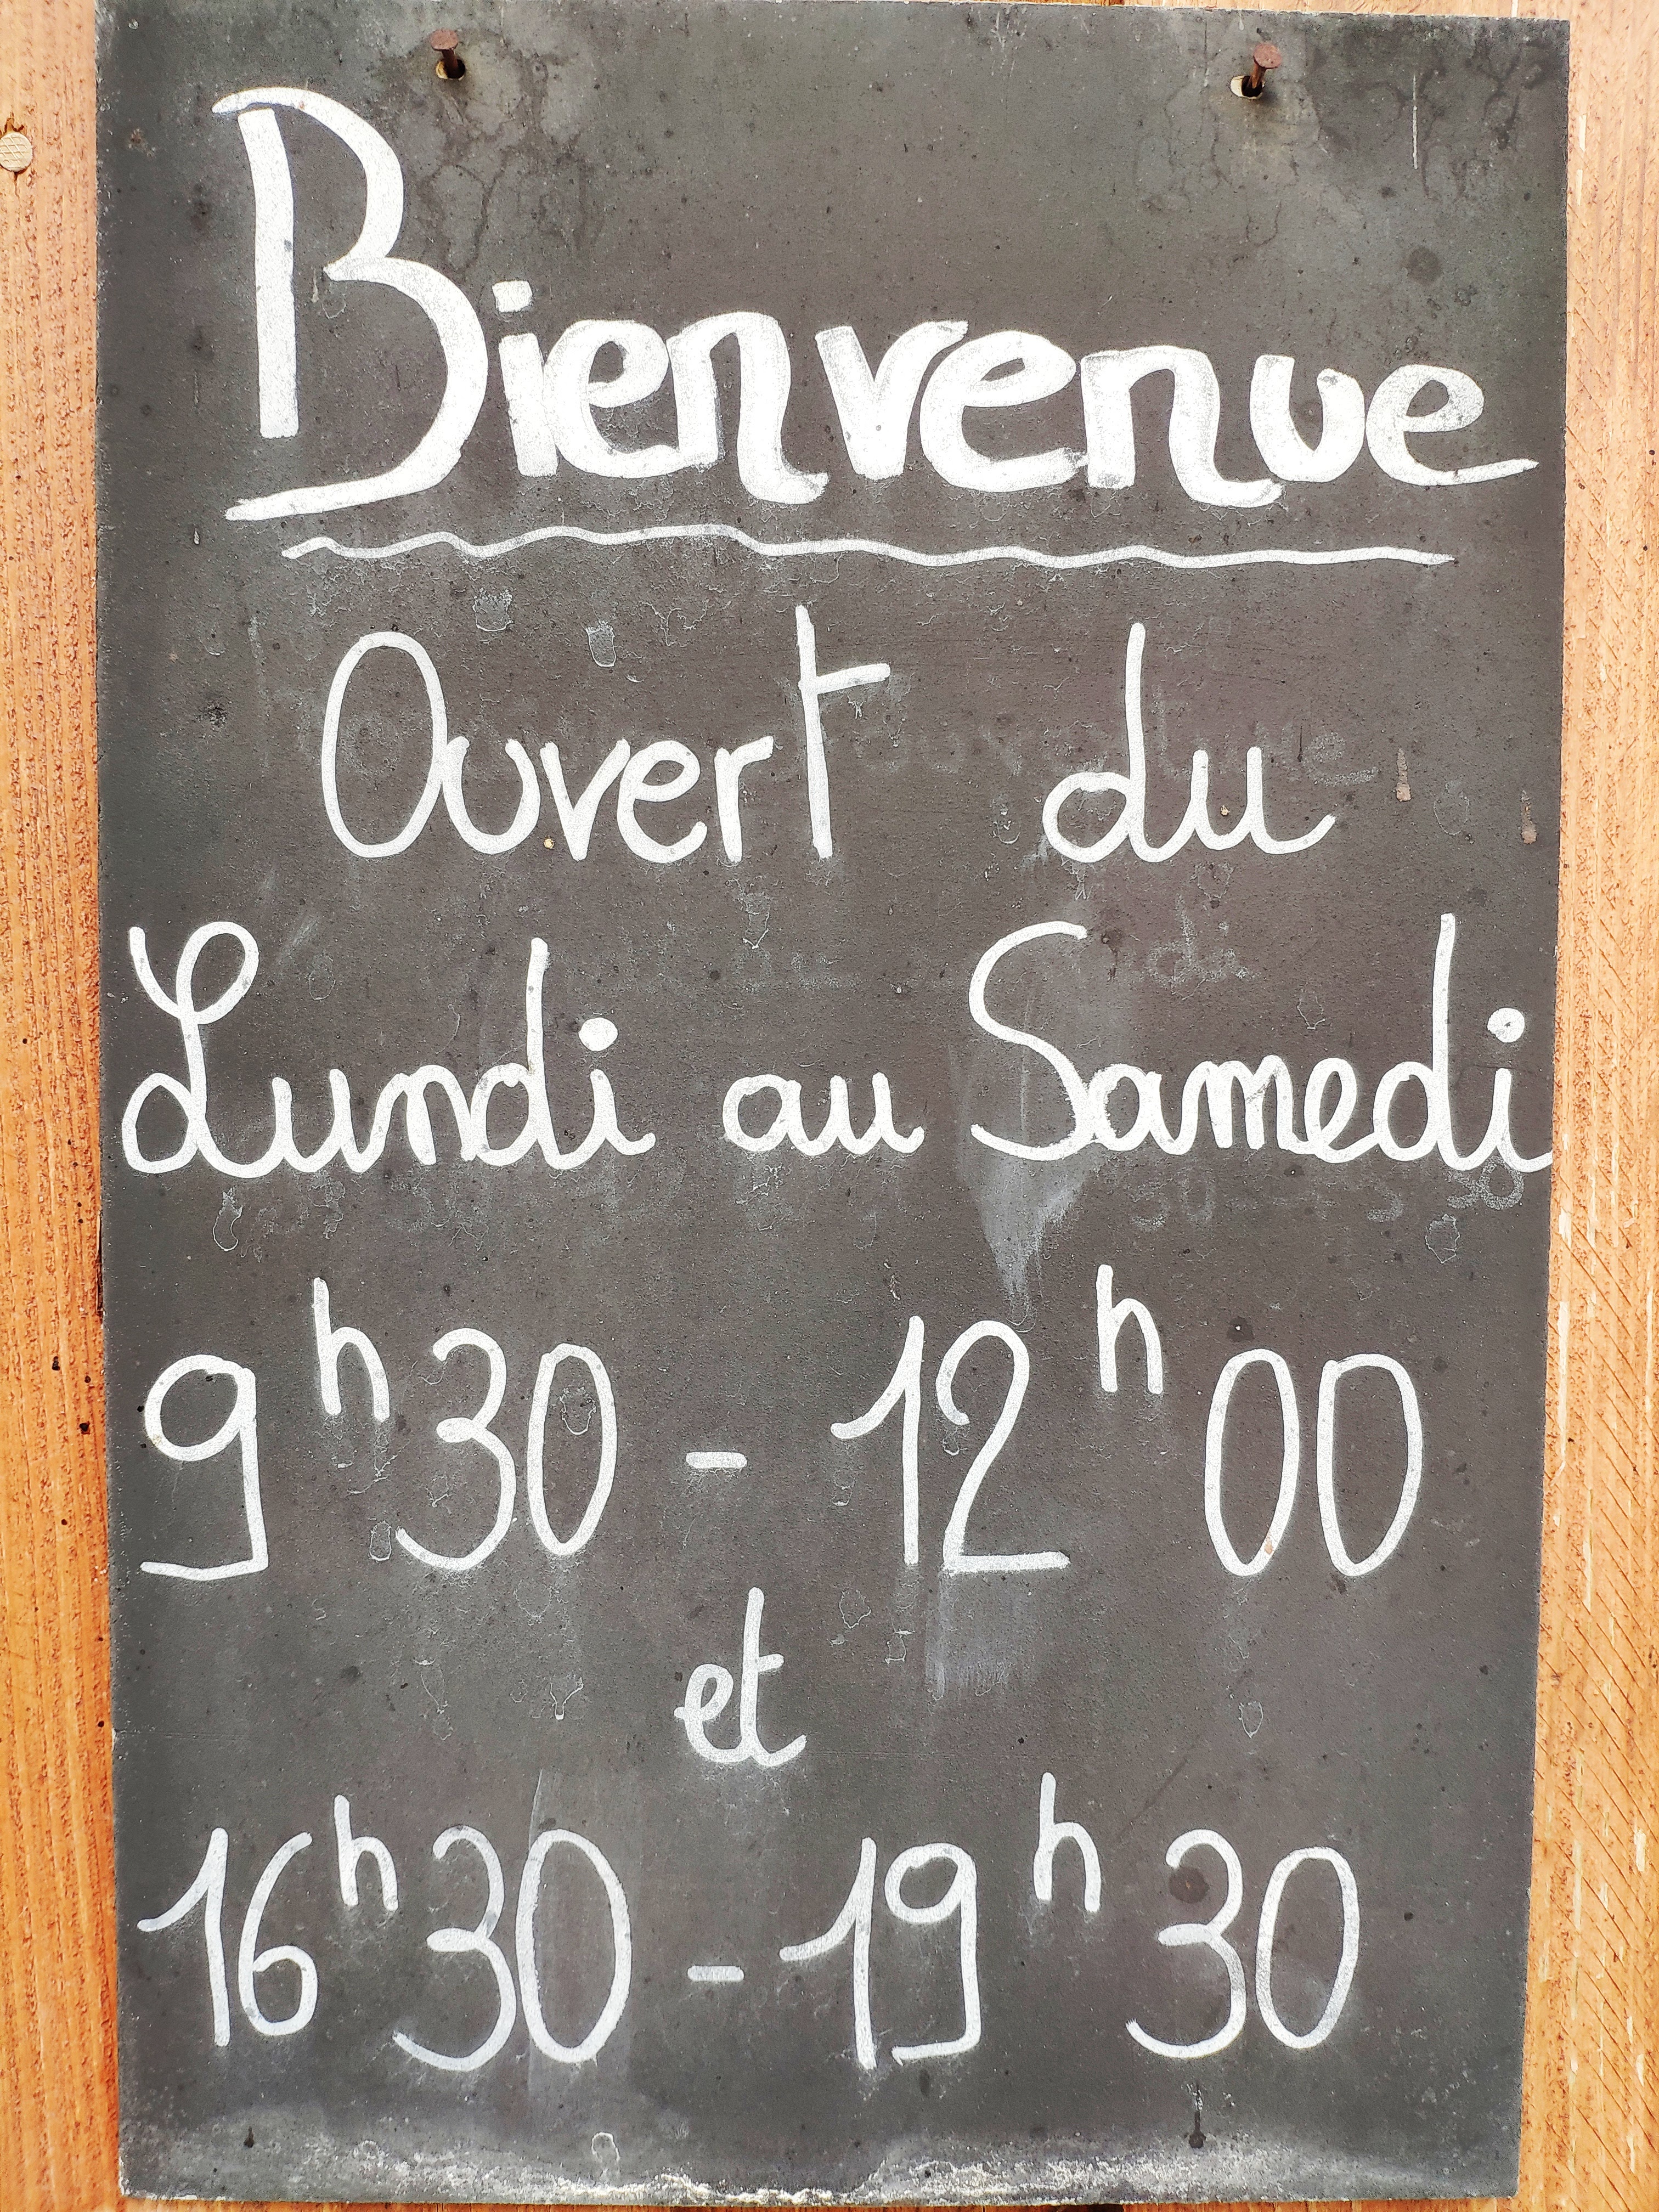 Bienvenue
Ouvert du
Lundi au Samedi
9h30 - 12h00
et
16h30 - 19h30